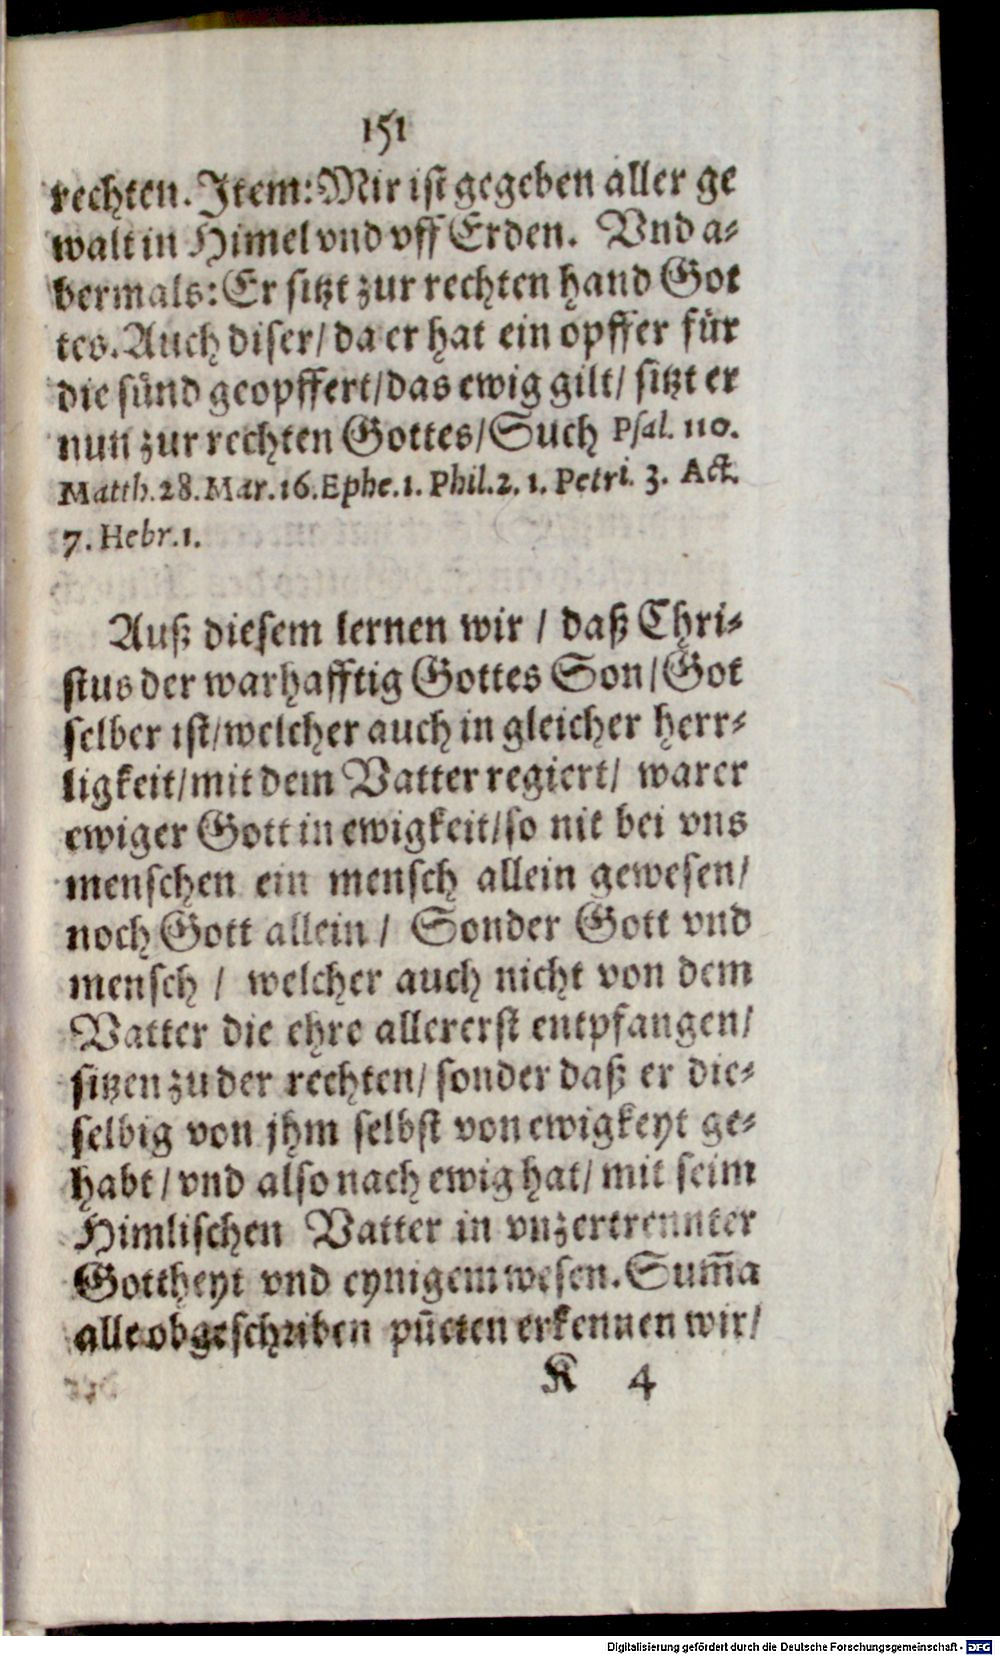 151
rechten. Item: Mir ist gegeben aller ge
walt in Himel vnd vff Erden. Vnd a-
bermals: Er sitzt zur rechten hand Got
tes. Auch diser/ da er hat ein opffer für
die sünd geopffert/ das ewig gilt/ sitzt er
nun zur rechten Gottes/ Such Psal. 110.
Matth. 28. Mar. 16. Ephe. 1. Phil. 2. 1. Petri. 3. Act.
7. Hebr. 1.
Auß diesem lernen wir / daß Chri-
stus der warhafftig Gottes Son/ Got
selber ist/ welcher auch in gleicher herr-
ligkeit/ mit dem Vatter regiert/ warer
ewiger Gott in ewigkeit/ so nit bei vns
menschen ein mensch allein gewesen/
noch Gott allein / Sonder Gott vnd
mensch / welcher auch nicht von dem
Vatter die ehre allererst entpfangen/
sitzen zu der rechten/ sonder daß er die-
selbig von jhm selbst von ewigkeyt ge-
habt / vnd also nach ewig hat/ mit seim
Himlischen Vatter in vnzertrennter
Gottheyt vnd eynigem wesen. Sum̃a
alle obgeschriben pũcten erkennen wir/
K 4
Digitalisierung gefördert durch die Deutsche Forschungsgemeinschaft - DFG